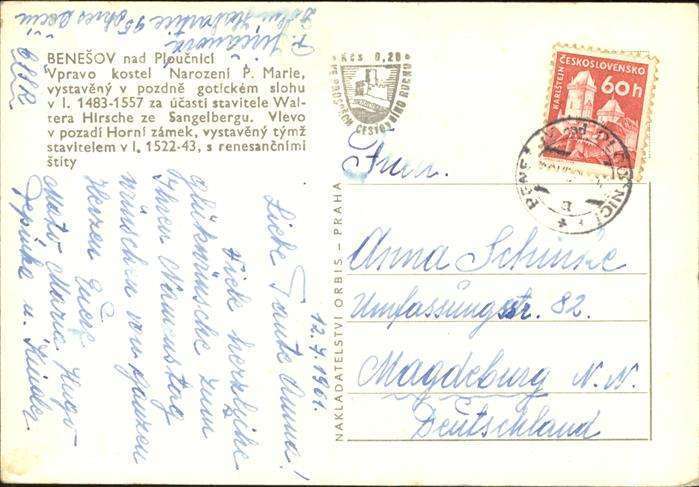 BENEŠOV nad Ploučnicí
Vpravo kostel Narození P. Marie,
vystavěný v pozdně gotickém slohu
v l. 1483-1557 za účasti stavitele Wal-
tera Hirsche ze Sangelbergu. Vlevo
v pozadí Horní zámek, vystavěný týmž
stavitelem v l. 1522-43, s renesančními
štíty
Kčs 0,20
VE PROSPĚCH CESTOVNÍHO RUCHU
ČESKOSLOVENSKO
KARLŠTEJN
60h
NAKLADATELSTVÍ ORBIS – PRAHA
Frau.
Anna Schinke
Umfassungstr. 82.
Magdeburg N. N.
Deutschland
12.7.1961.
Liebe Tante Anna!
Viele herzliche
glückwünsche zum
Ihren Namenstag
wünschen von ganzen
Herzen Euere
Maria Hugo
Pepinka u. Kinder
ČSSR